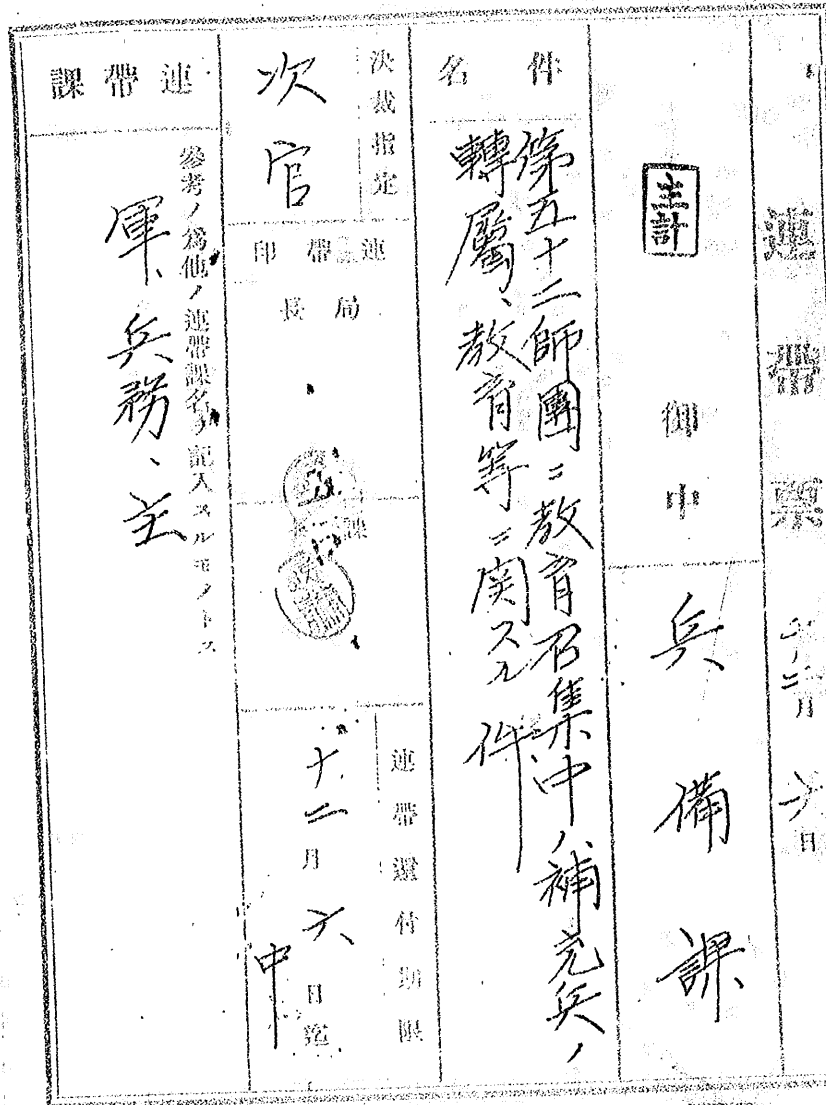 連帶票
十二月六日
主計
御中
兵備課
件名
第五十二師團ニ教育召集中ノ補充兵ノ
轉屬、教育等ニ関スル件
決裁指定
次官
連帶印
局長
課長
連帶還付期限
十二月六日迄
中
連帶課
參考ノ爲他ノ連帶課名ヲ記入スルモノトス
軍、兵務、主